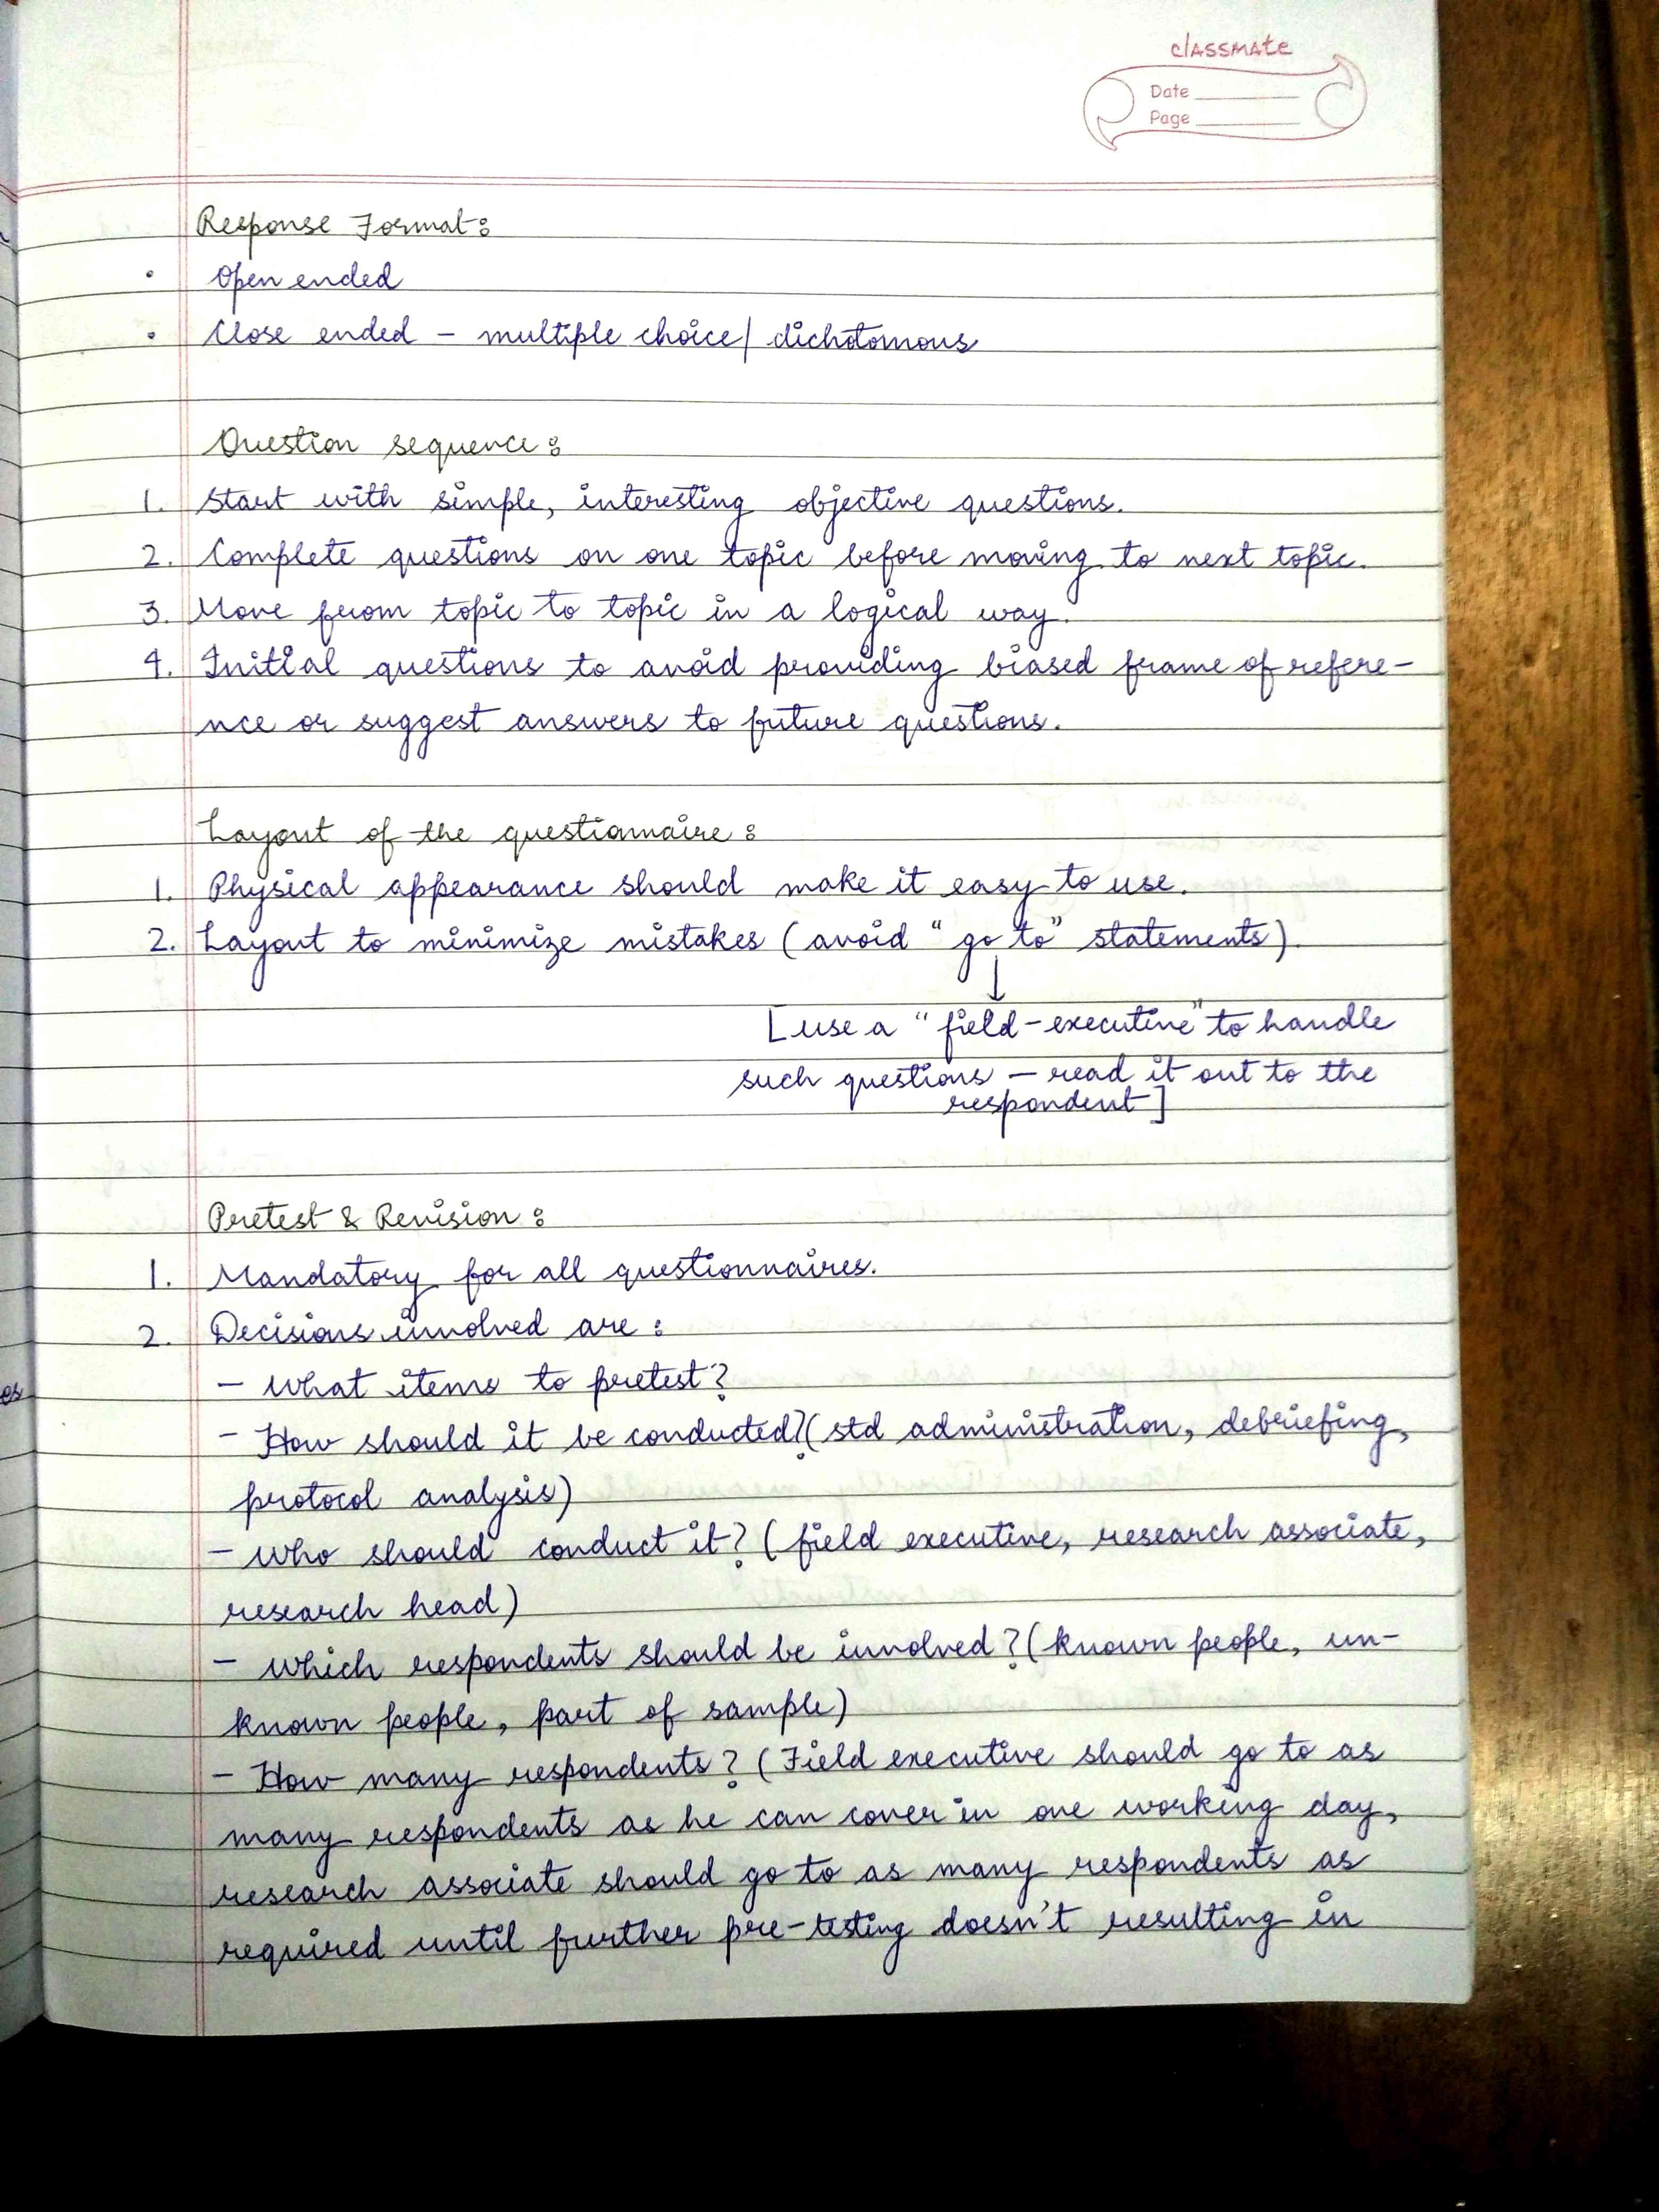 classmate
Date
Page
Response Format:
• Open ended
• Close ended – multiple choice/ dichotomous
Question sequence:
1. Start with simple, interesting objective questions.
2. Complete questions on one topic before moving to next topic.
3. Move from topic to topic in a logical way.
4. Initial questions to avoid providing biased frame of refere-
nce or suggest answers to future questions.
Layout of the questionnaire:
1. Physical appearance should make it easy to use.
2. Layout to minimize mistakes (avoid "go to" statements).
↓
[use a "field-executive" to handle
such questions – read it out to the
respondent]
Pretest & Revision:
1. Mandatory for all questionnaires.
2. Decisions involved are:
– What items to pretest?
– How should it be conducted? (std administration, debriefing,
protocol analysis)
– Who should conduct it? (field executive, research associate,
research head)
– Which respondents should be involved? (known people, un-
known people, part of sample)
– How many respondents? (Field executive should go to as
many respondents as he can cover in one working day,
research associate should go to as many respondents as
required until further pre-testing doesn't resulting in